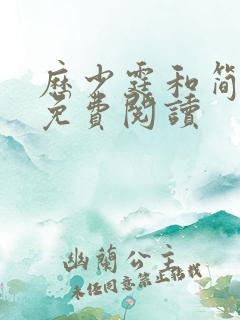 厉少霆和简
免費閱讀
幽蘭公主
未经同意禁止转载